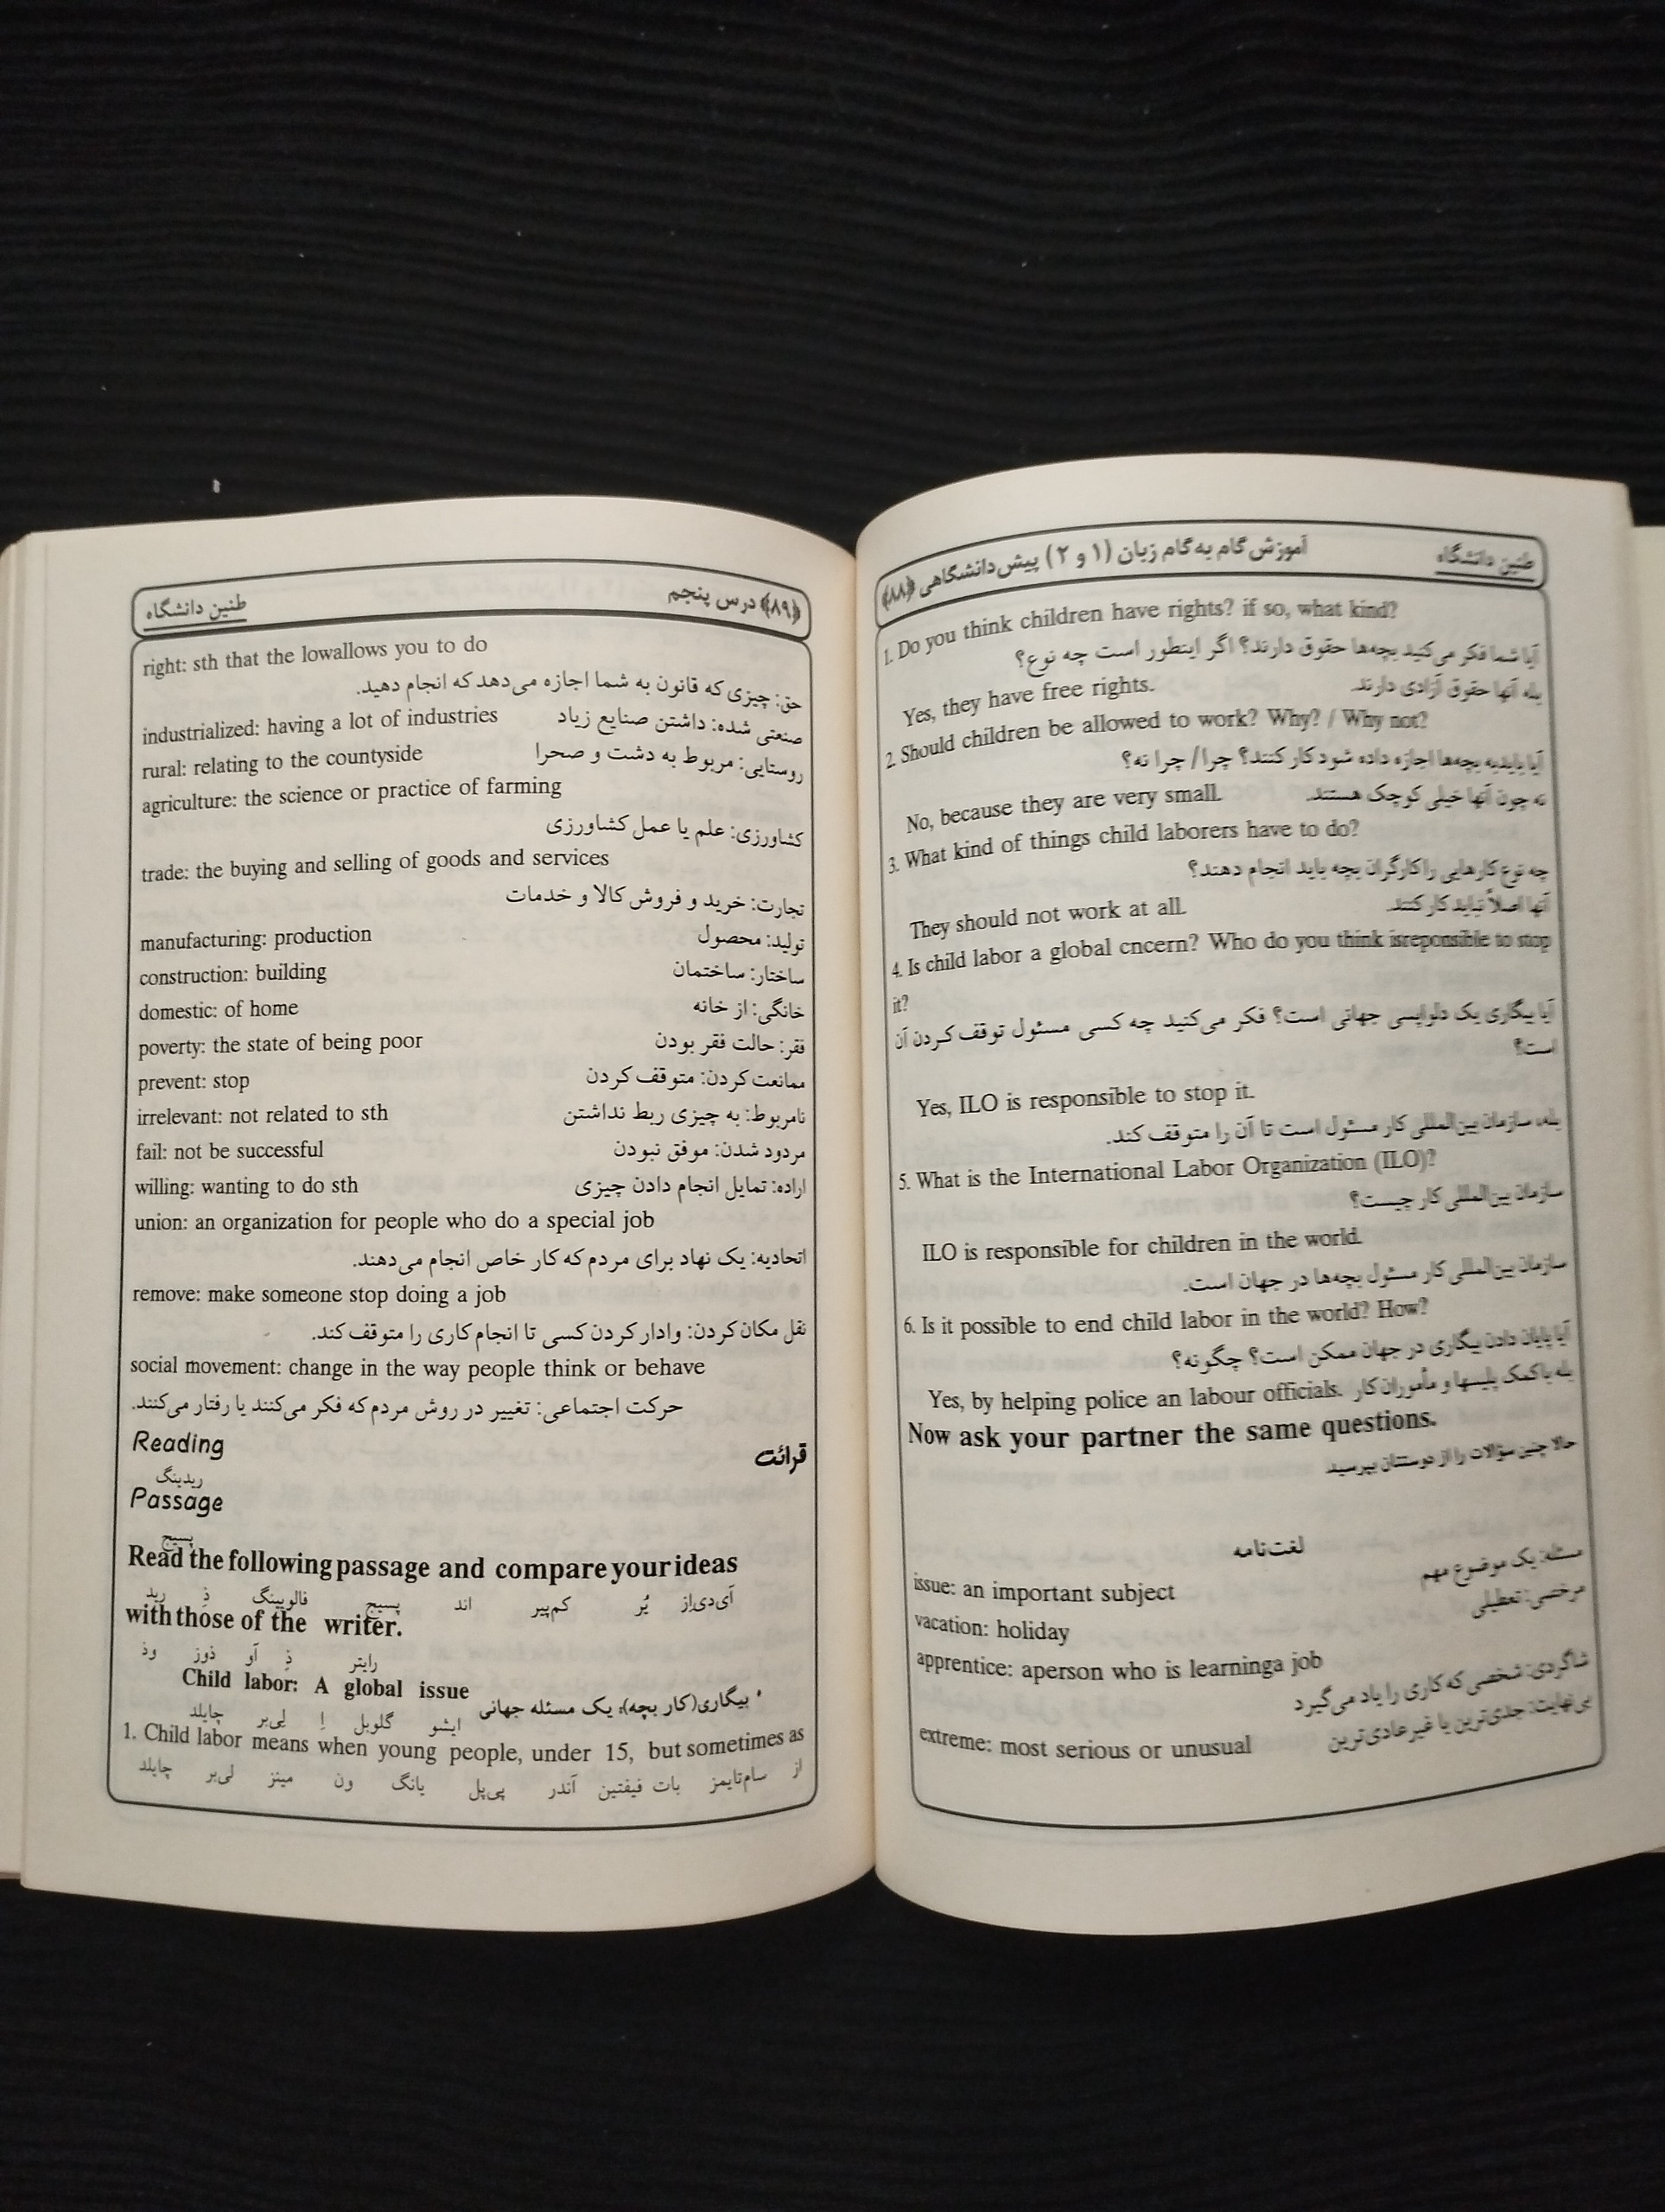 طنین دانشگاه
آموزش گام به گام زبان (۱ و ۲) پیش‌دانشگاهی ﴿۸۸﴾
1. Do you think children have rights? if so, what kind?
آیا شما فکر می‌کنید بچه‌ها حقوق دارند؟ اگر اینطور است چه نوع؟
Yes, they have free rights. بله آنها حقوق آزادی دارند.
2. Should children be allowed to work? Why? / Why not?
آیا باید به بچه‌ها اجازه داده شود کار کنند؟ چرا/ چرا نه؟
No, because they are very small. نه چون آنها خیلی کوچک هستند.
3. What kind of things child laborers have to do?
چه نوع کارهایی را کارگران بچه باید انجام دهند؟
They should not work at all. آنها اصلاً نباید کار کنند.
4. Is child labor a global cncern? Who do you think isreponsible to stop
it?
آیا بیگاری یک دلواپسی جهانی است؟ فکر می‌کنید چه کسی مسئول توقف کردن آن
است؟
Yes, ILO is responsible to stop it.
بله، سازمان بین‌المللی کار مسئول است تا آن را متوقف کند.
5. What is the International Labor Organization (ILO)?
سازمان بین‌المللی کار چیست؟
ILO is responsible for children in the world.
سازمان بین‌المللی کار مسئول بچه‌ها در جهان است.
6. Is it possible to end child labor in the world? How?
آیا پایان دادن بیگاری در جهان ممکن است؟ چگونه؟
Yes, by helping police an labour officials. بله با کمک پلیسها و مأموران کار
Now ask your partner the same questions.
حالا چنین سؤالات را از دوستتان بپرسید.
لغت‌نامه
issue: an important subject مسئله: یک موضوع مهم
vacation: holiday مرخصی: تعطیلی
apprentice: aperson who is learninga job
شاگردی: شخصی که کاری را یاد می‌گیرد
extreme: most serious or unusual بی‌نهایت: جدی‌ترین یا غیرعادی‌ترین
﴿۸۹﴾ درس پنجم
طنین دانشگاه
right: sth that the lowallows you to do
حق: چیزی که قانون به شما اجازه می‌دهد که انجام دهید.
industrialized: having a lot of industries صنعتی شده: داشتن صنایع زیاد
rural: relating to the countyside روستایی: مربوط به دشت و صحرا
agriculture: the science or practice of farming
کشاورزی: علم یا عمل کشاورزی
trade: the buying and selling of goods and services
تجارت: خرید و فروش کالا و خدمات
manufacturing: production تولید: محصول
construction: building ساختار: ساختمان
domestic: of home خانگی: از خانه
poverty: the state of being poor فقر: حالت فقر بودن
prevent: stop ممانعت کردن: متوقف کردن
irrelevant: not related to sth نامربوط: به چیزی ربط نداشتن
fail: not be successful مردود شدن: موفق نبودن
willing: wanting to do sth اراده: تمایل انجام دادن چیزی
union: an organization for people who do a special job
اتحادیه: یک نهاد برای مردم که کار خاص انجام می‌دهند.
remove: make someone stop doing a job
نقل مکان کردن: وادار کردن کسی تا انجام کاری را متوقف کند.
social movement: change in the way people think or behave
حرکت اجتماعی: تغییر در روش مردم که فکر می‌کنند یا رفتار می‌کنند.
Reading قرائت
ریدینگ
Passage
پسیج
Read the following passage and compare your ideas
رید ذِ فالویینگ پسیج اند کم‌پیر یُر آی‌دی‌از
with those of the writer.
وذ ذوز آو ذِ رایتر
Child labor: A global issue بیگاری(کار بچه)، یک مسئله جهانی
چایلد لِی‌بر اِ گلوبل ایشو
1. Child labor means when young people, under 15, but sometimes as
چایلد لی‌بر مینز ون یانگ پی‌پل آندر فیفتین بات سام‌تایمز از